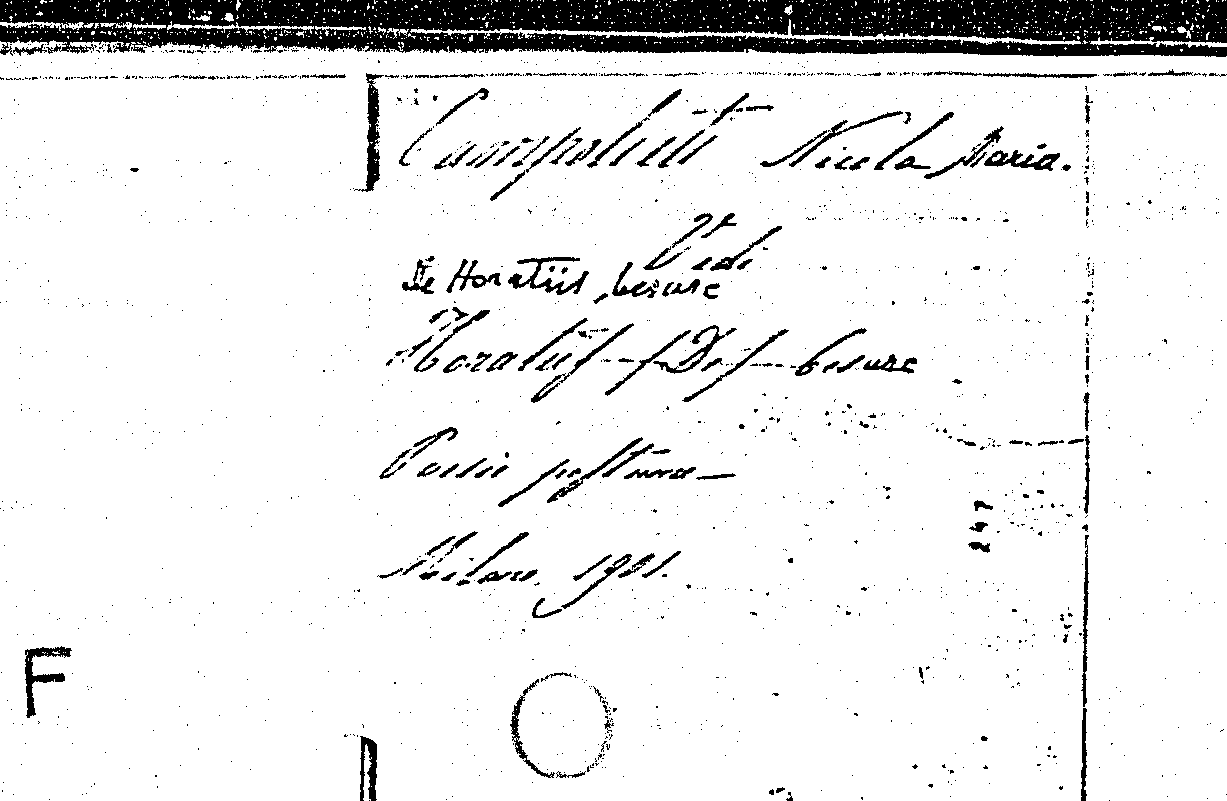 Campolieti Nicola Maria.
Vedi
De Horatiis, Cesare
Horatiis (De) Cesare
Poesie postume
Milano, 1901.
247
F